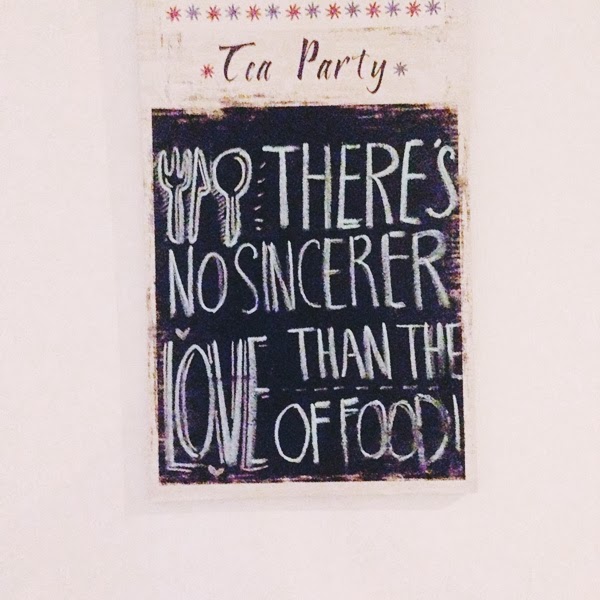 Tea Party
THERE'S
NO SINCERER
LOVE THAN THE
OF FOOD!